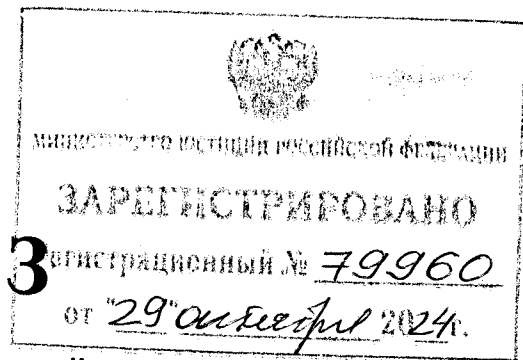 МИНИСТЕРСТВО ЮСТИЦИИ РОССИЙСКОЙ ФЕДЕРАЦИИ
ЗАРЕГИСТРИРОВАНО
З
Регистрационный № 79960
от "29" октября 2024г.